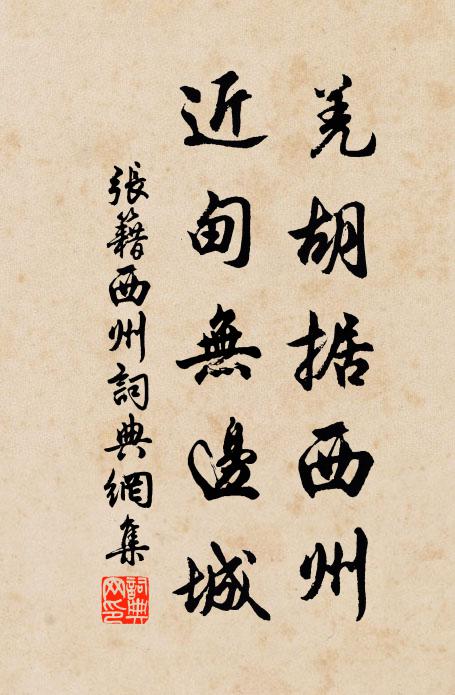 羌胡据西州
近甸無邊城
張籍西州詞典網集
詞典网印